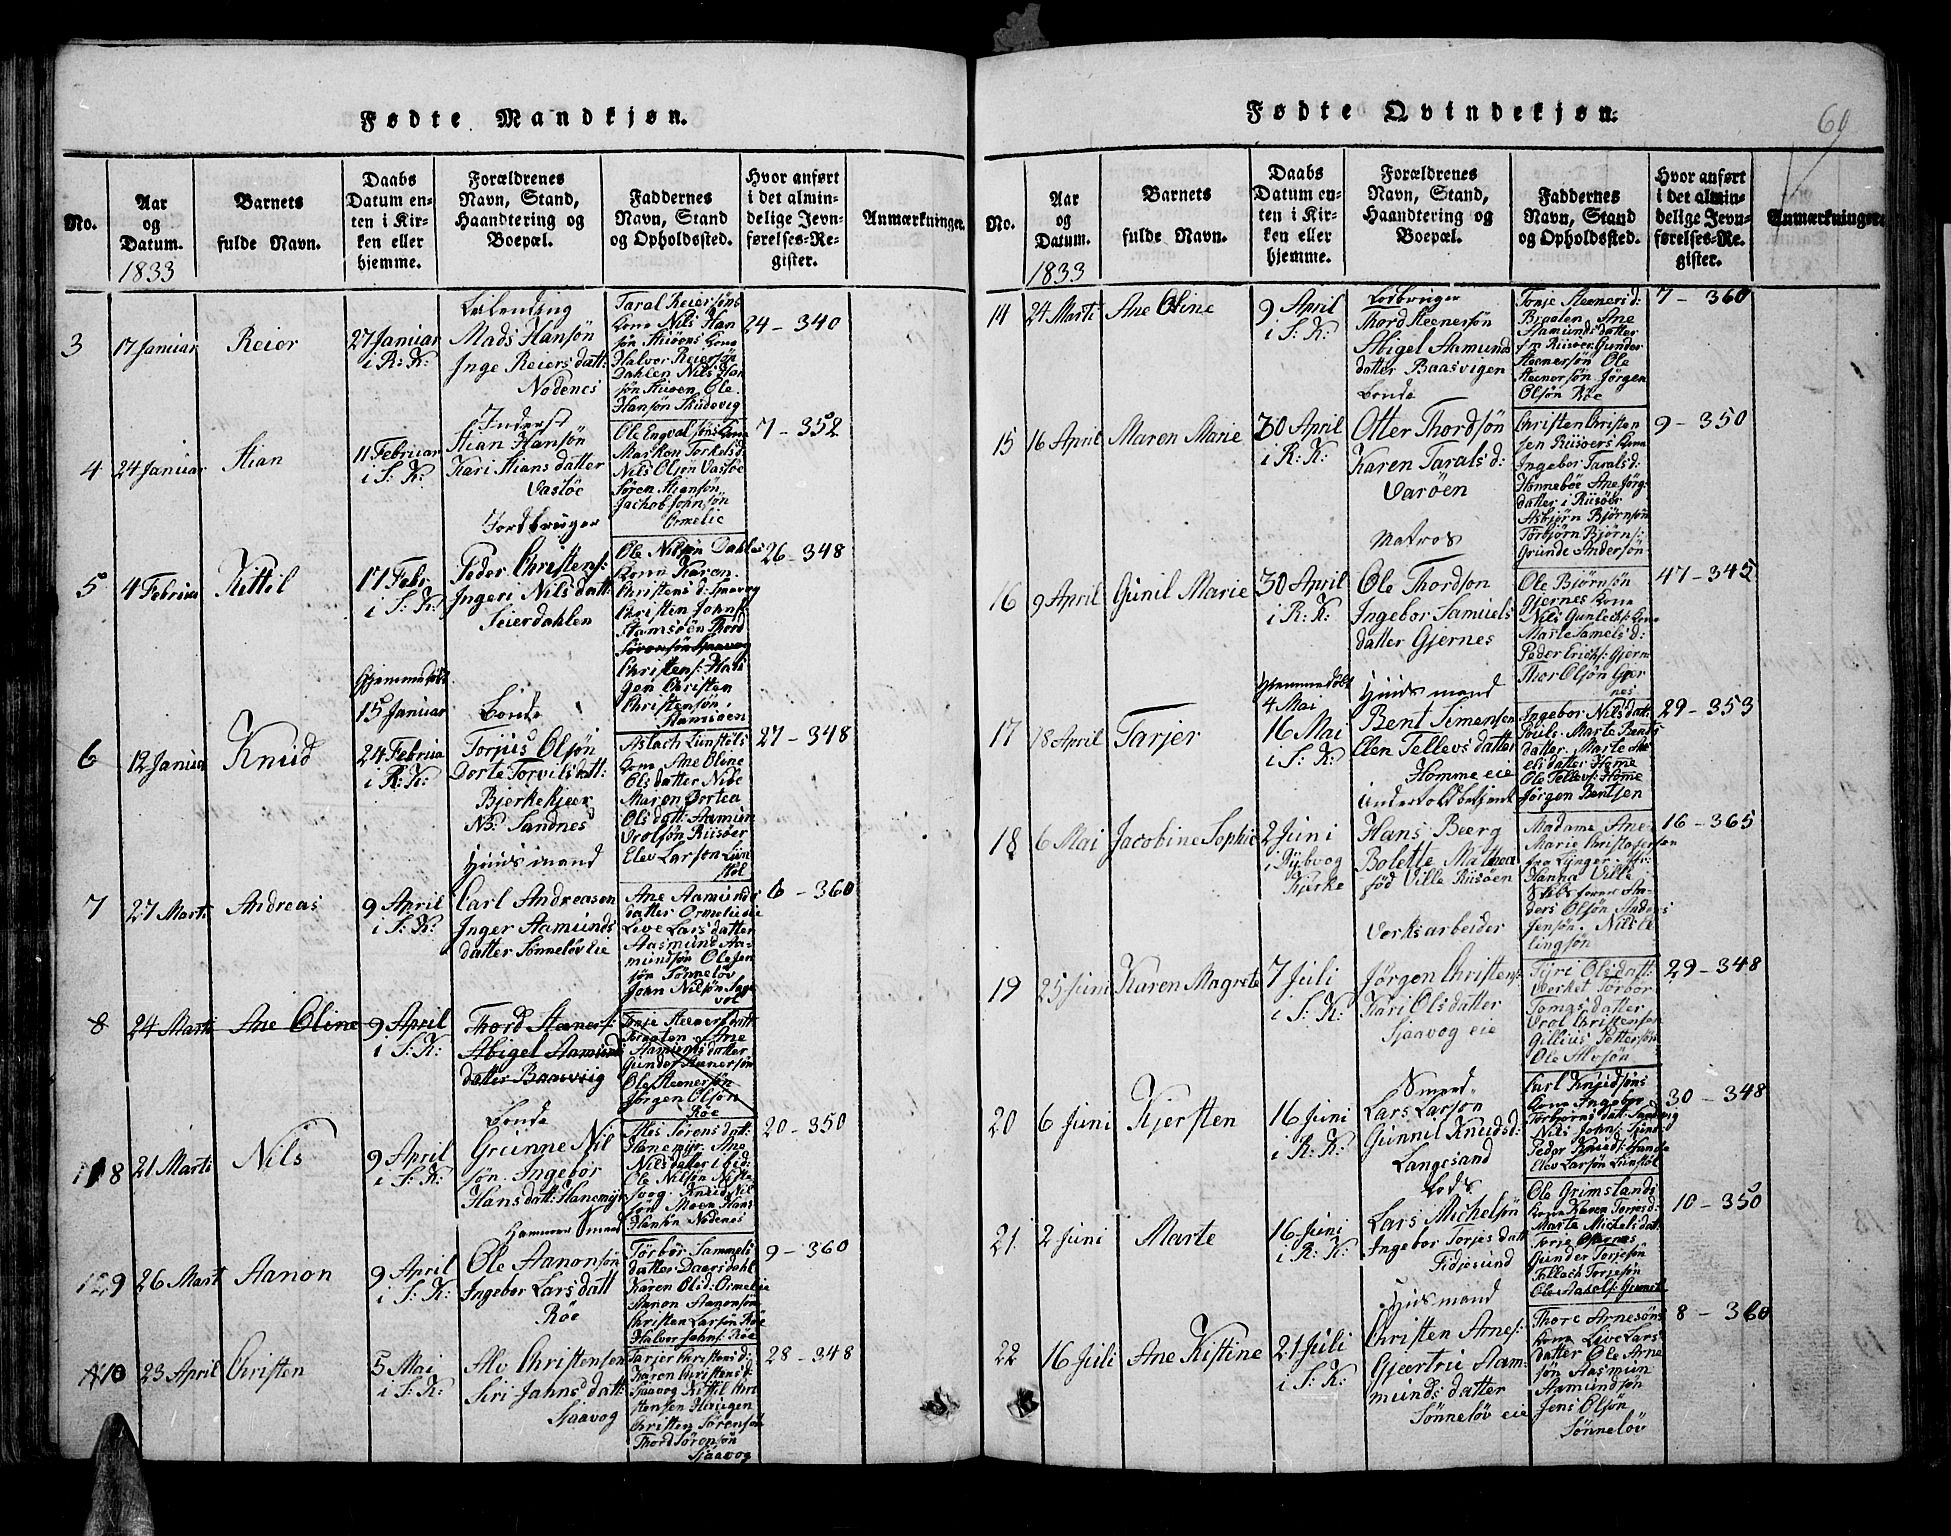 Fødte Mandkjøn.
No.
Aar
og
Datum.
1833
Barnets
fulde Navn.
Daabs
Datum en-
ten i Kir-
ken eller
hjemme.
Forældrenes
Navn, Stand,
Haandtering og
Boepæl.
Faddernes
Navn, Stand
og Opholdssted.
Hvor anført
i det almin-
delige Jevn-
førelses-Re-
gister.
Anmærkninger.
3
17 Januar
Reier
27 Januar
i R: K:
Mads Hansön
Inge Reiers datt:
Nodenes
Taral Reiersöns
Kone Nils Han
Halvor Reiersön
Dahlen Nils Han
Hansön Skudevig
24 - 340
4
24 Januar
Stian
11 Februar
i S: K:
Inderst
Stian Hansön
Kari Stians datter
Vastöe
Ole Engvalsöns Kone
Nils Olsön Vastöe
Sören Stiansön
Jachob Johnsön
Ormelie
7 - 352
5
4 Februar
Kittil
17 Febr.
i S: K:
Jordbruger
Peder Christens:
Ingeri Nils datt:
Seierdahlen
Ole Nilsön Dahlen
Kone Karen
Christens d: Sjaavog
Christen Johns:
Stamsöen Thord
Sörensön Sjaavog
Christens: Hau
gen Christen
Christensön
Stamsöen
26 - 348
6
12 Januar
Knud
Hjemmedöbt
15 Januar
24 Februar
i R: K:
Bonde
Torjus Olsön
Dorte Torvils datt:
Bjerkekjeer
NB: Sandnes
Aslach Lunstöls
Kone Ane Olene
Ols datter Nibe
Maren Dortea
Ols datt: Aamun
Vrolsön Riisöer
Elev Larsön Lun
stöl
27 - 348
7
27 Marts
Andreas
9 April
i S: K:
Huusmand
Carl Andreasen
Inger Aamunds
datter Sönnelöv Eie
Ane Aamunds
datter Ormelie eie
Live Lars datter
Aasmund Aa-
mundsön Ole Jen
sön Sönnelöv
John Nilsön Sage
vol
6 - 360
8
24 Marts
Ane Oline
9 April
i S: K:
Thord Steners:
Abigel Aamunds
datter Baasvig
Tonje Steners datt:
Aamunds datter
Gunder Stenersön
Ole Stenersön
Jörgen Olsön
Röe
8
21 Marts
Nils
9 April
i S: K:
Bonde
Grunne Nil
sön. Ingebor
Hans datt: Hanemyr
Hanemyr: Ane
Nils datter ibid:
Ole Nilsön
Hansön Nodenes
20 - 350
9
26 Mart
Aanon
9 April
i S: K:
Hammer Smed
Ole Aanonsön
Ingebor Lars datt
Röe
Torbor Sammels
datter Daarsdahl
Karen Ols d: Ormelie
Aanon Aanonsön
Christen Larsön Röe
Halvor Johns: Röe
9 - 360
10
23 April
Christen
5 Mai
i S: K:
Alv Christensen
Siri Jahns datt:
Sjaavog
Tarjer Christens d:
Karen Christens d:
Sjaavog Kittil Chri
stensen Haugen
Christen Sörensön
Thord Sörensön
Sjaavog
28 - 348
Fødte Qvindekjøn.
69
No.
Aar
og
Datum.
1833
Barnets
fulde Navn.
Daabs
Datum en-
ten i Kir-
ken eller
hjemme.
Forældrenes
Navn, Stand,
Haandtering og
Boepæl.
Faddernes
Navn, Stand
og Opholdssted.
Hvor anført
i det almin-
delige Jevn-
førelses-Re-
gister.
Anmærkninger.
14
24 Marts
Ane Oline
9 April
i S: K:
Thord Stenersön
Abigel Aamunds
datter Baasvigen
Tonje Steners d:
Ane
Aamunds datter
fra Riisöer. Gunder
Stenersön Ole
Stenersön Jörgen
Olsön Röe
7 - 360
15
16 April
Maren Marie
30 April
i R: K:
Bonde
Otter Thordsön
Karen Tarals d:
Varöen
Christen Christen
sen Riisöers Kone
Ingebor Tarals d:
Honneböe Ane Jörg:
datter i Riisöer
Asbjörn Björnsön
Torbjörn Björns:
Grunde Andersön
9 - 350
16
9 April
Gunil Marie
30 April
i R: K:
Matros
Ole Thordson
Ingebor Samuels
datter Gjernes
Ole Björnsön
Gjernes Kone
Marte Samels d:
Peder Erichs: Gjern
Thor Olsön Gjer
nes
47 - 345
17
18 April
Tarjer
Hjemmedöbt
4 Mai
16 Mai
i S: K:
Huusmand
Bent Simensen
Elen Tellevs datter
Homme eie
Ingebor Nils datt:
Marte Bents
datter. Marte
Ole Tellevs: Home
Jörgen Bentsen
29 - 353
18
6 Mai
Jacobine Sophie
2 Juni
i Dybvog
Kjerke
Undertoldbetjent
Hans Beerg
Bolette Mathea
föd Ville Riisöen
Madame Ane
Marie Christofersen
fra Lynger. Jfr:
Hanna Ville
Skibs förer An-
ders Olsön Anders
Jensön. Nils El
lingsön
16 - 365
19
25 Juni
Karen Magrete
7 Juli
i S: K:
Verksarbeider
Jörgen Christens:
Kari Ols datter
Sjaavog eie
Tyri Ols datt:
Verket Torbor
Toms datter
Vrol Christensen
Gillius Pettersön
Ole Alvsön
29 - 348
20
6 Juni
Kjersten
16 Juni
i R: K:
Smed
Lars Larsön
Gunnil Knuds d:
Langesand
Carl Knudsöns
Kone Ingebor
Nils Johns:
Peder Knuds:
Elev Larsön Lunstöl
30 - 348
21
2 Juni
Marte
16 Juni
i R: K:
Lods
Lars Michelsön
Ingebor Torjes datt
Fidjesund
Ole Grimslands
Kone Karen Torjes d:
Marte Michels datt:
Gunder Torjesön
Follach Torjesön
10 - 350
22
16 Juli
Ane Kistine
21 Juli
i S: K:
Huusmand
Christen Arnes:
Gjertru Aam-
munds datter
Sönnelöv eie
Thore Arnesöns
Kone Live Lars
datter Ole Arne
sön Aasmun
Aamundsön
Jens Olsön
Sönnelöv
8 - 360